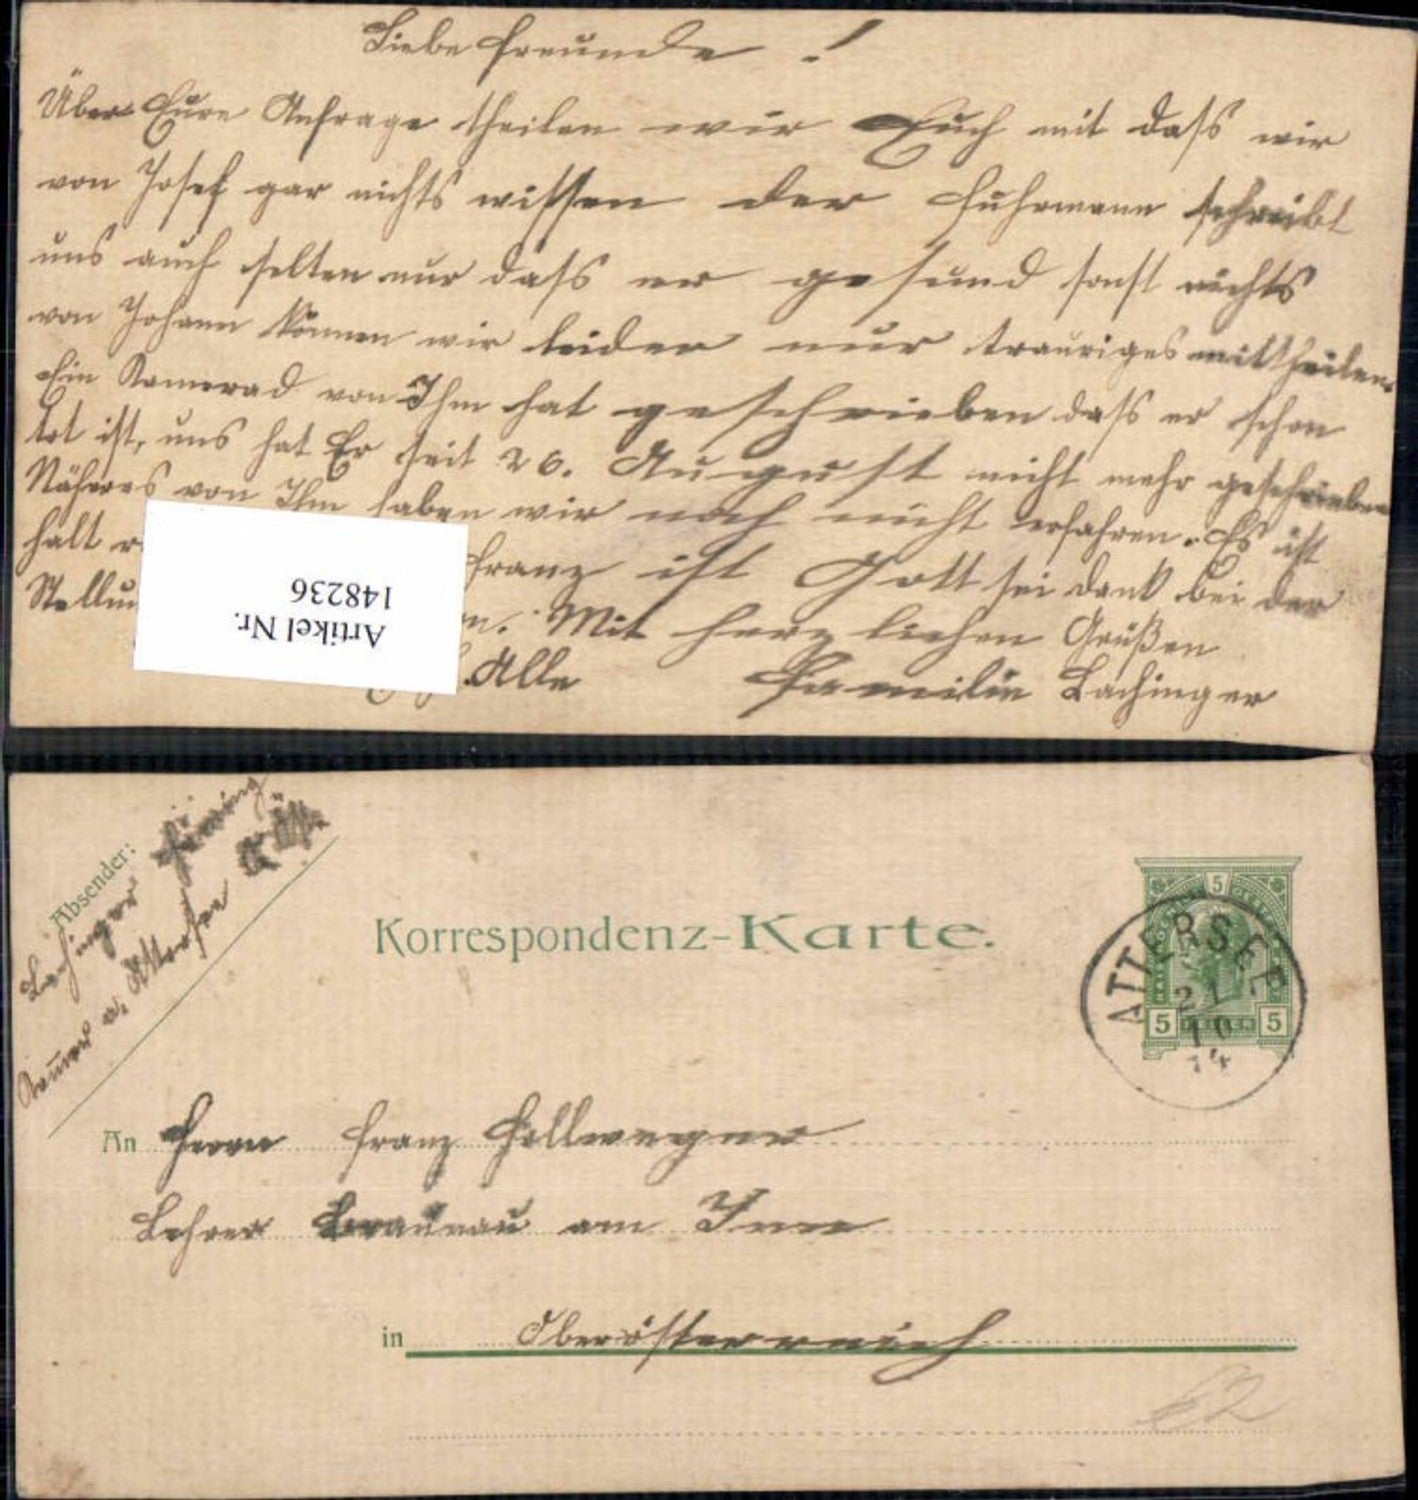 Liebe Freunde!
Über Eure Anfrage theilen wir Euch mit dass wir
von Josef gar nichts wissen der Fuhrmann schreibt
uns auch selten nur dass er gesund sonst nichts
von Johann können wir leider nur trauriges mittheilen.
Ein Kamerad von Ihm hat geschrieben dass er schon
tot ist, uns hat Er seit 26. August nicht mehr geschrieben
Näheres von Ihm haben wir noch nicht erfahren. Es ist
halt Franz ist Gott sei dank bei der
Mit herzlichen Grüßen
Alle Familie Lachinger
Artikel Nr.
148236
Absender:
Lachinger
a. Attersee
Korrespondenz-Karte.
5
5 HELLER 5
ATTERSEE
21
10
14
An Herrn Franz Hollweger
Lehrer Braunau am Inn
in Oberösterreich